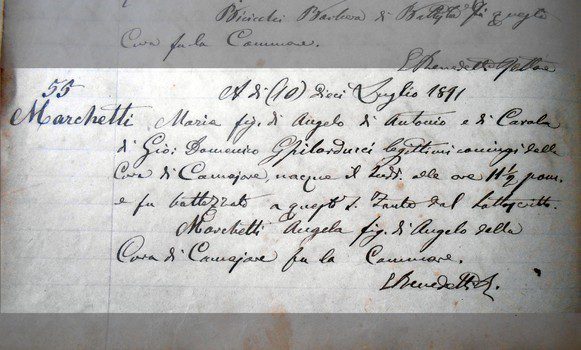 Bicicchi Barbera di Battista di questa
Cura fu la Commare.
L. Benedetti
55
A dì (10) Dieci Luglio 1891
Marchetti Maria fig. di Angelo di Antonio e di Carola
di Gio: Domenico Ghilarducci legittimi coniugi della
Cura di Camajore, nacque il sudd. alle ore 11½ pom.
e fu battezzata a questo S. Fonte dal sottoscritto.
Marchetti Angela fig. di Angelo della
Cura di Camajore fu la Commare.
L. Benedetti